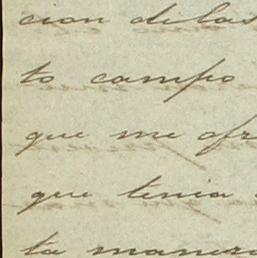 cion delas
to campo
que me ofr
que tenia
ta manera